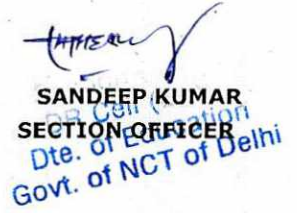 SANDEEP KUMAR
SECTION OFFICER
Cell
Dte. of Education
Govt. of NCT of Delhi